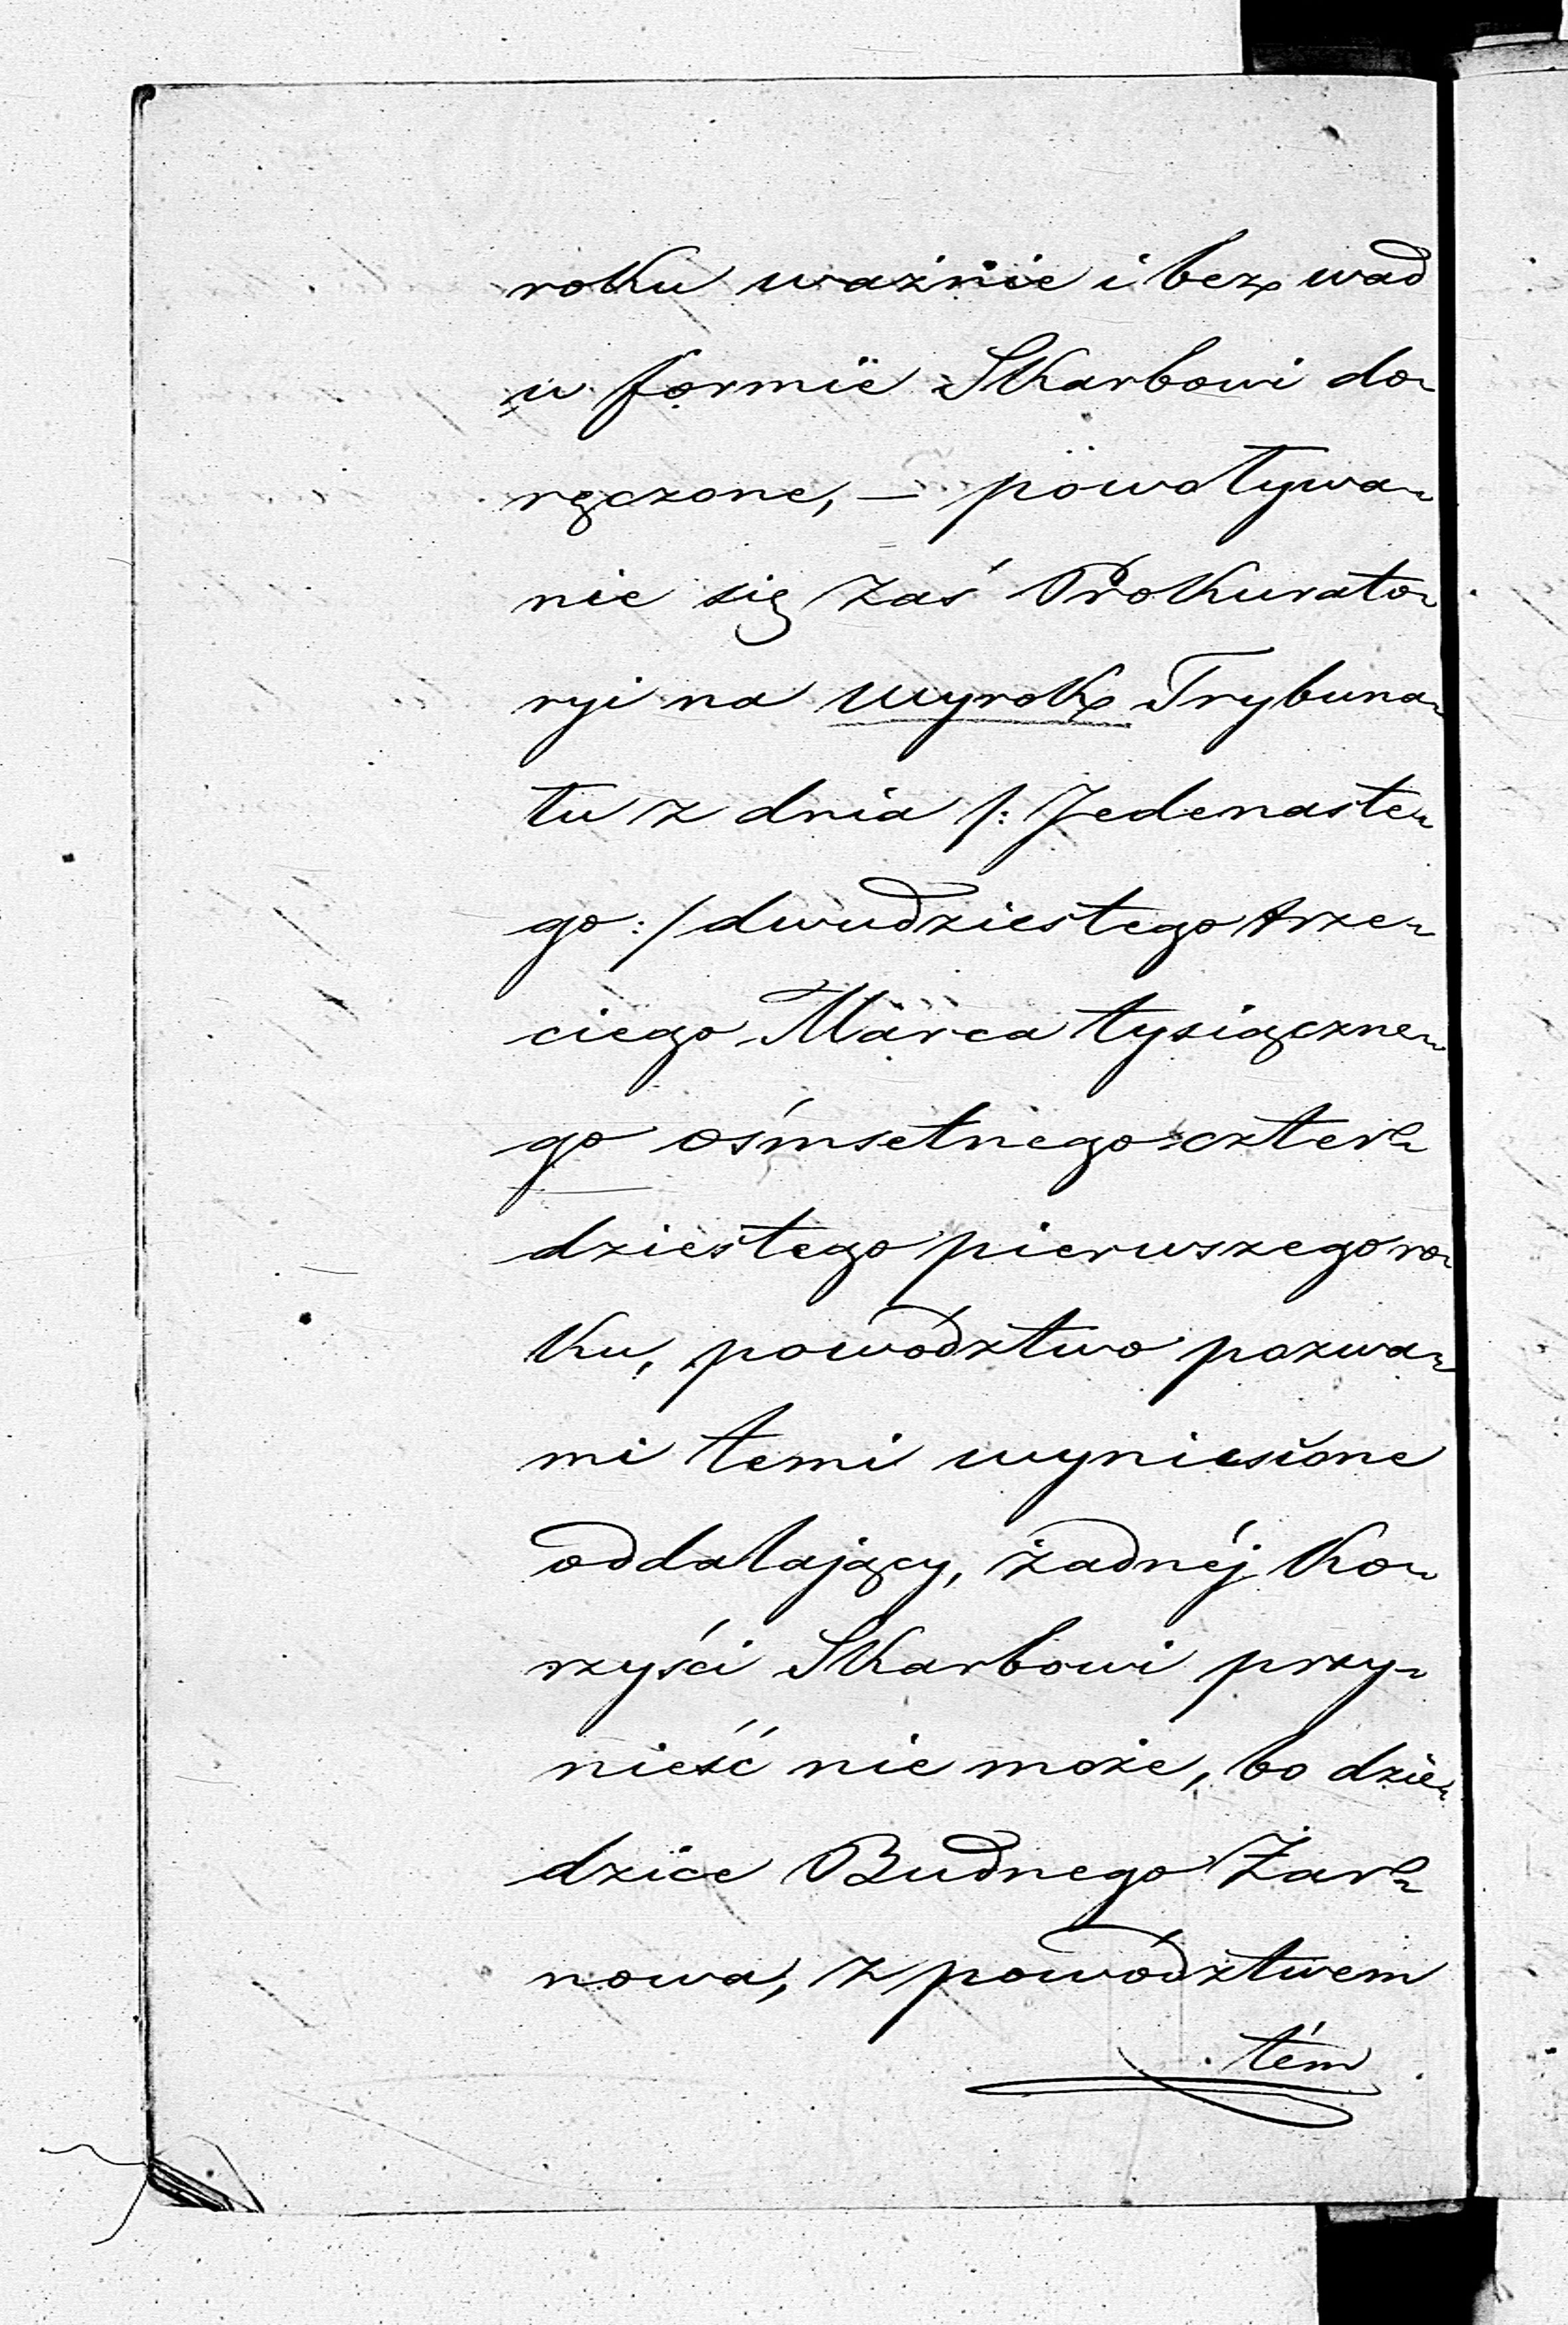 roku ważnie i bez wad
w formie Skarbowi do-
ręczone, — powoływa-
nie się zaś Prokurato-
ryi na wyrok Trybuna-
łu z dnia /: Jedenaste-
go :/ dwudziestego trze-
ciego Marca tysiączne-
go ośmsetnego czter-
dziestego pierwszego ro-
ku, powództwo pozwa-
mi temi wyniesione
oddalający, żadnéj ko-
rzyści Skarbowi przy-
nieść nie może, bo dzie-
dzice Budnego Żar-
nowa, z powództwem
tém